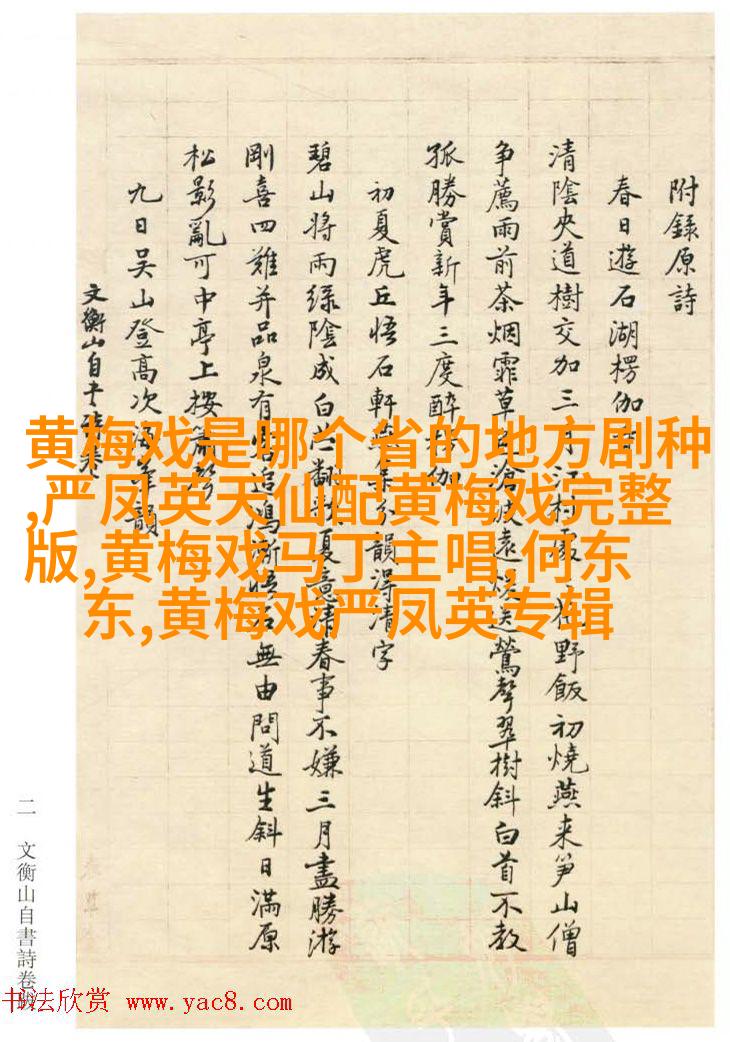 附錄原詩
春日遊石湖楞伽
清陰夾道樹交加三月江村野飯初燒燕来笋山僧
争薦雨前茶烟霏草滄遠送鶯聲翠樹斜白首不教
孤勝賞新年三度醉伽
初夏虎丘悟石軒分韻得清字
碧山将雨緑陰成白翻夏意清春事不嫌三月盡勝游
剛喜四難并品泉有追鴻漸悟石無由問道生斜日滿原
松影亂可中亭上按聲
九日吴山登高次韻
文衡山自卷
二 文衡山自書詩卷跋
黄梅戏是哪个省的地方剧种
,严凤英天仙配黄梅戏完整
版,黄梅戏马丁主唱,何东
东,黄梅戏严凤英专辑
书法欣赏 www.yac8.com